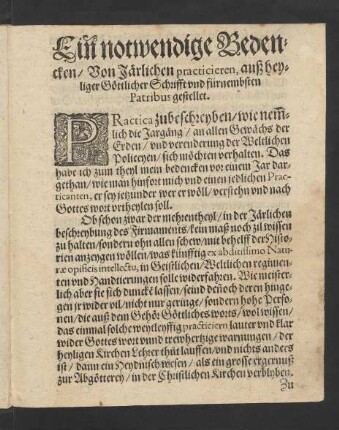 Ein notwendige Beden-
cken / Von Järlichen practicieren, auß hey-
liger Göttlicher Schrifft vnd fürnembsten
Patribus gestellet.
PRactica zubeschreyben / wie nem̃-
lich die Jargäng / an allen Gewächs der
Erden / vnd verenderung der Weltlichen
Policeyen / sich möchten verhalten. Das
habe ich zum theyl mein bedencken vor einem Jar dar-
gethan / wie man hinfort mich vnd einen jedlichen Prac-
ticanten, er sey jetzunder wer er wöll / verstehn vnd nach
Gottes wort vrtheylen soll.
Ob schon zwar der mehrentheyl / in der Järlichen
beschreybung des Firmaments / kein maß noch zil wissen
zu halten / sondern ohn allen schew / mit behelff der Histo-
rien anzeygen wöllen / was künfftig ex abditissimo Natu-
ræ opificis intellectu, in Geistlichen / Weltlichen regimen-
ten vnd Handtierungen solle widerfahren. Wie meister-
lich aber sie sich dunckt lassen / seind deñoch deren hinge-
gen jr wider vil / nicht nur geringe / sondern hohe Perso-
nen / die auß dem Gehör Göttliches worts / wol wissen /
das einmal solche weytleyffig practiciern lauter vnd klar
wider Gottes wort vnnd trewhertzige warnungen / der
heyligen Kirchen Lehrer thüt lauffen / vnd nichts anders
ist / dann ein Heydnisch wesen / als ein grosse ergernuß
zur Abgötterey / in der Christlichen Kirchen verblyben.
Zu